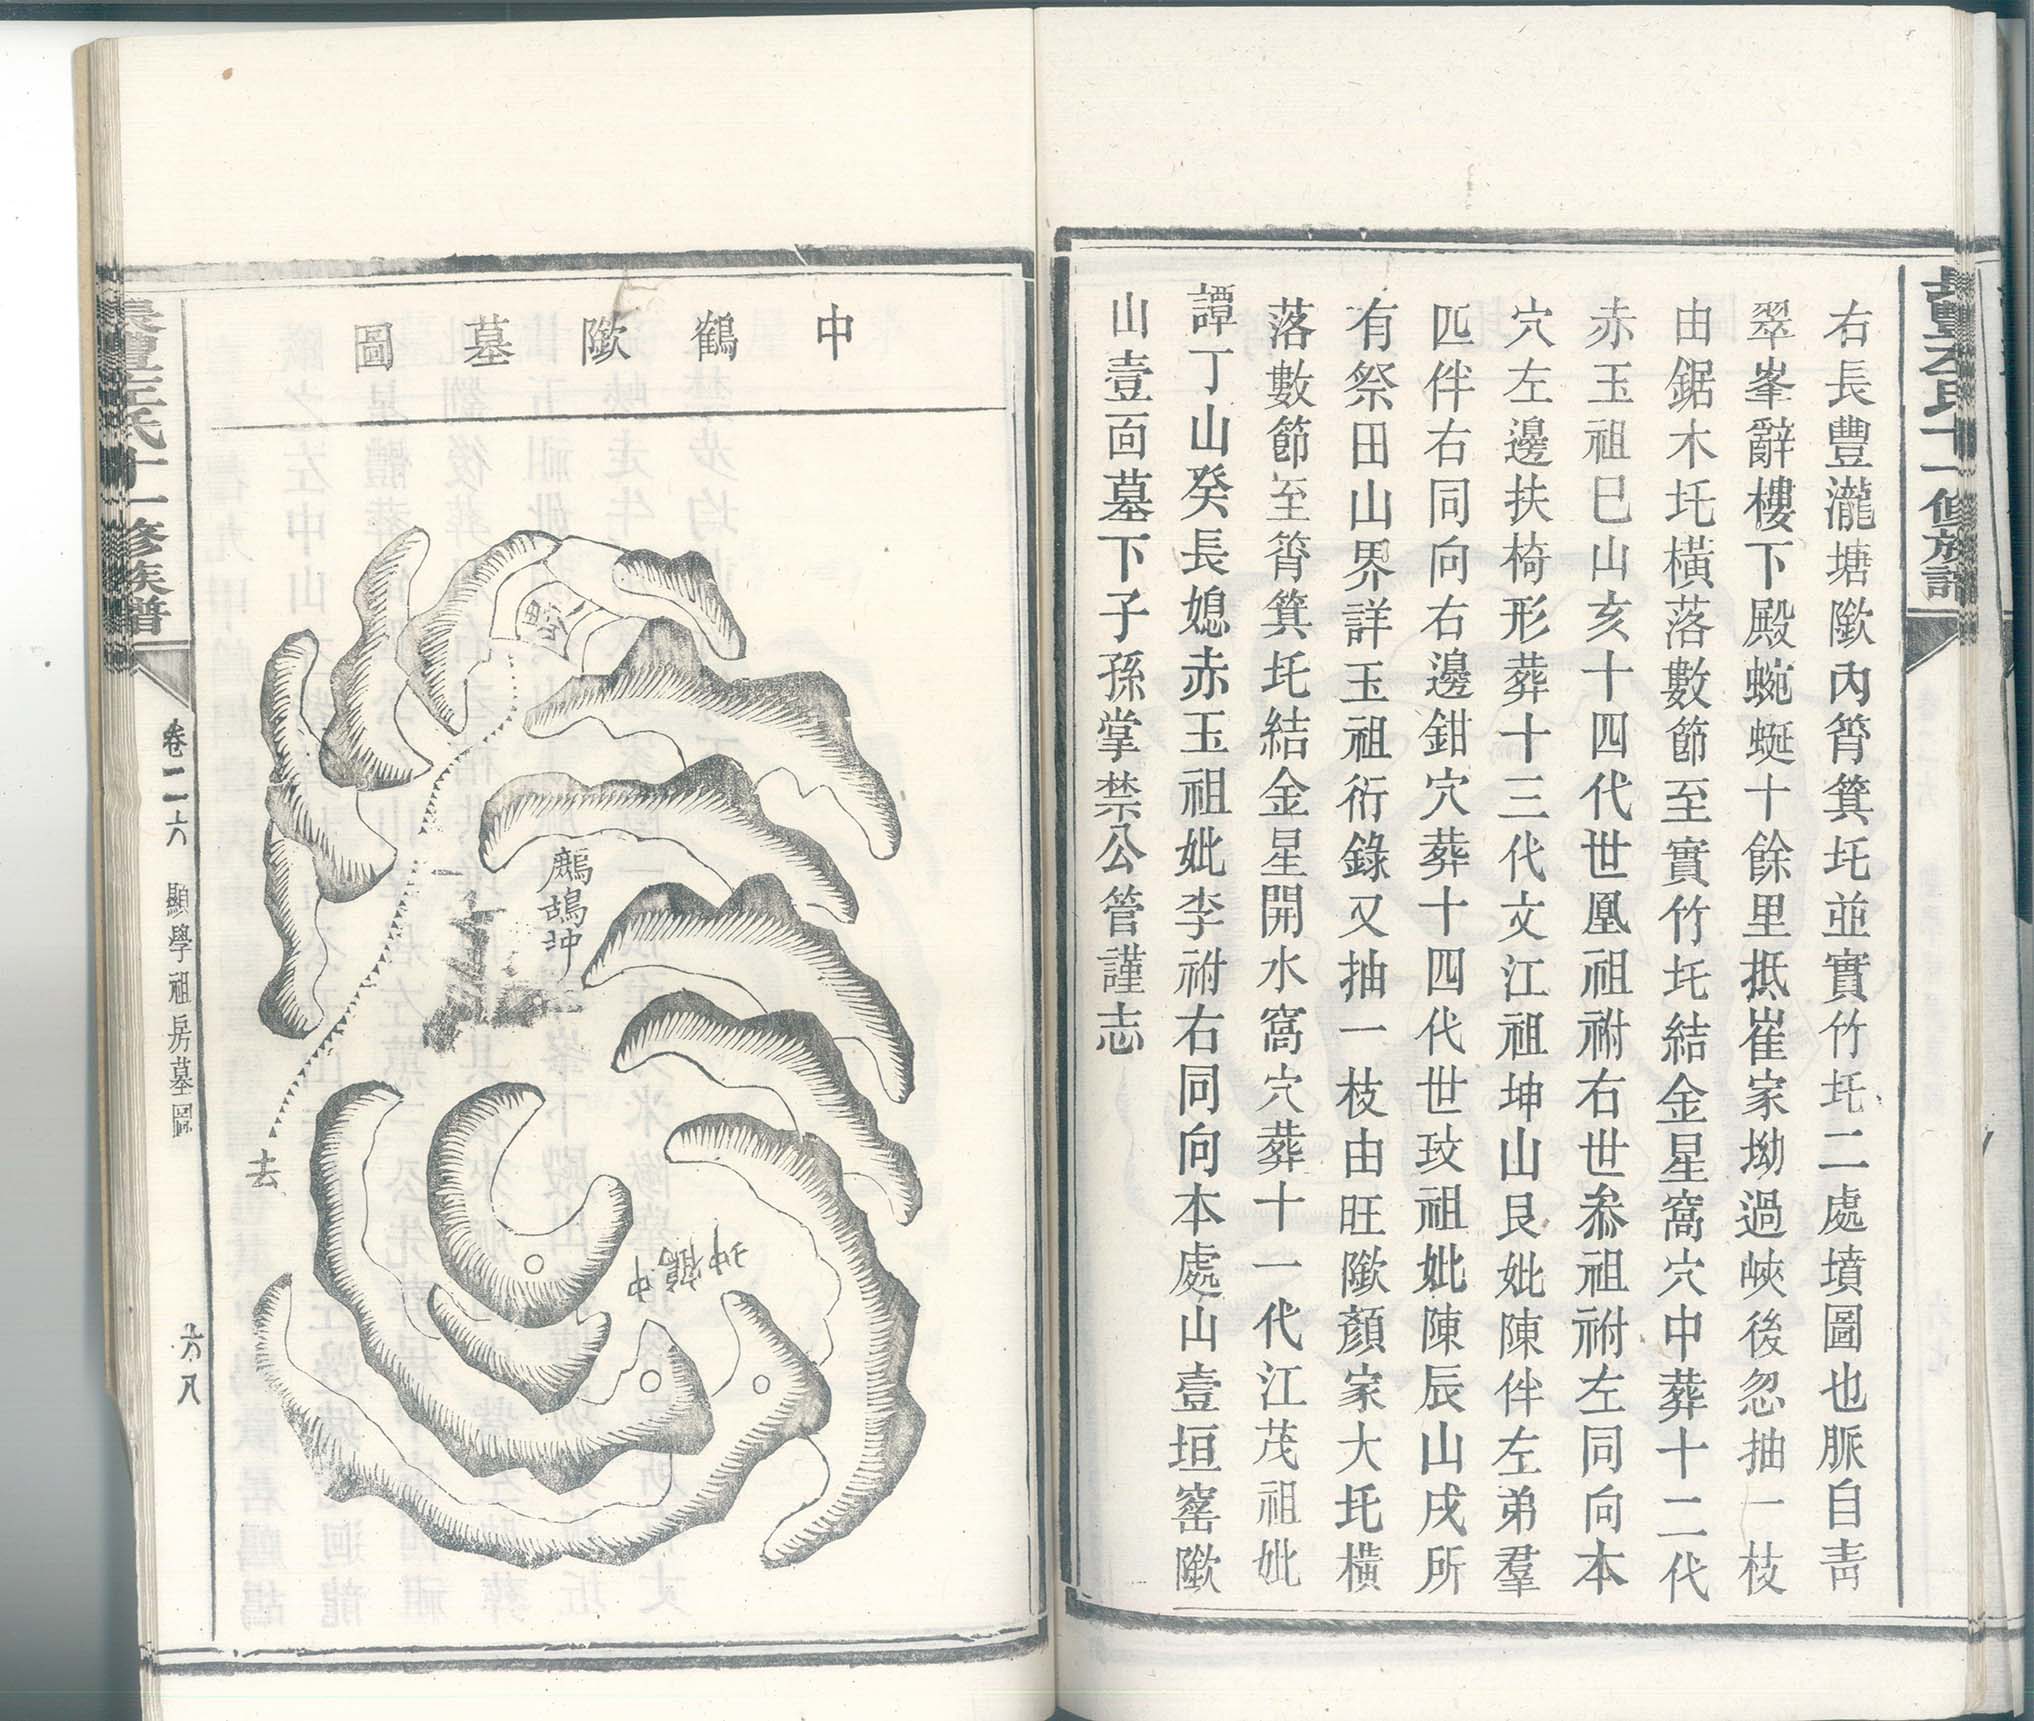 右長豐瀧塘歘內筲箕圫並實竹圫二處墳圖也脈自青
翠峯辭樓下殿蜿蜒十餘里抵崔家坳過峽後忽抽一枝
由鋸木圫橫落數節至實竹圫結金星窩穴中葬十二代
赤玉祖巳山亥十四代世凰祖祔右世叅祖祔左同向本
穴左邊扶椅形葬十三代文江祖坤山艮妣陳伴左弟羣
匹伴右同向右邊鉗穴葬十四代世玟祖妣陳辰山戌所
有祭田山界詳玉祖衍錄又抽一枝由旺歘顏家大圫橫
落數節至筲箕圫結金星開水窩穴葬十一代江茂祖妣
譚丁山癸長媳赤玉祖妣李祔右同向本處山壹垣窰歘
山壹面墓下子孫掌禁公管謹志
中鶴歘墓圖
鷓鴣坤
中鶴坤
去
長豐左氏十一修族譜
卷二六
顯學祖房墓圖
六八